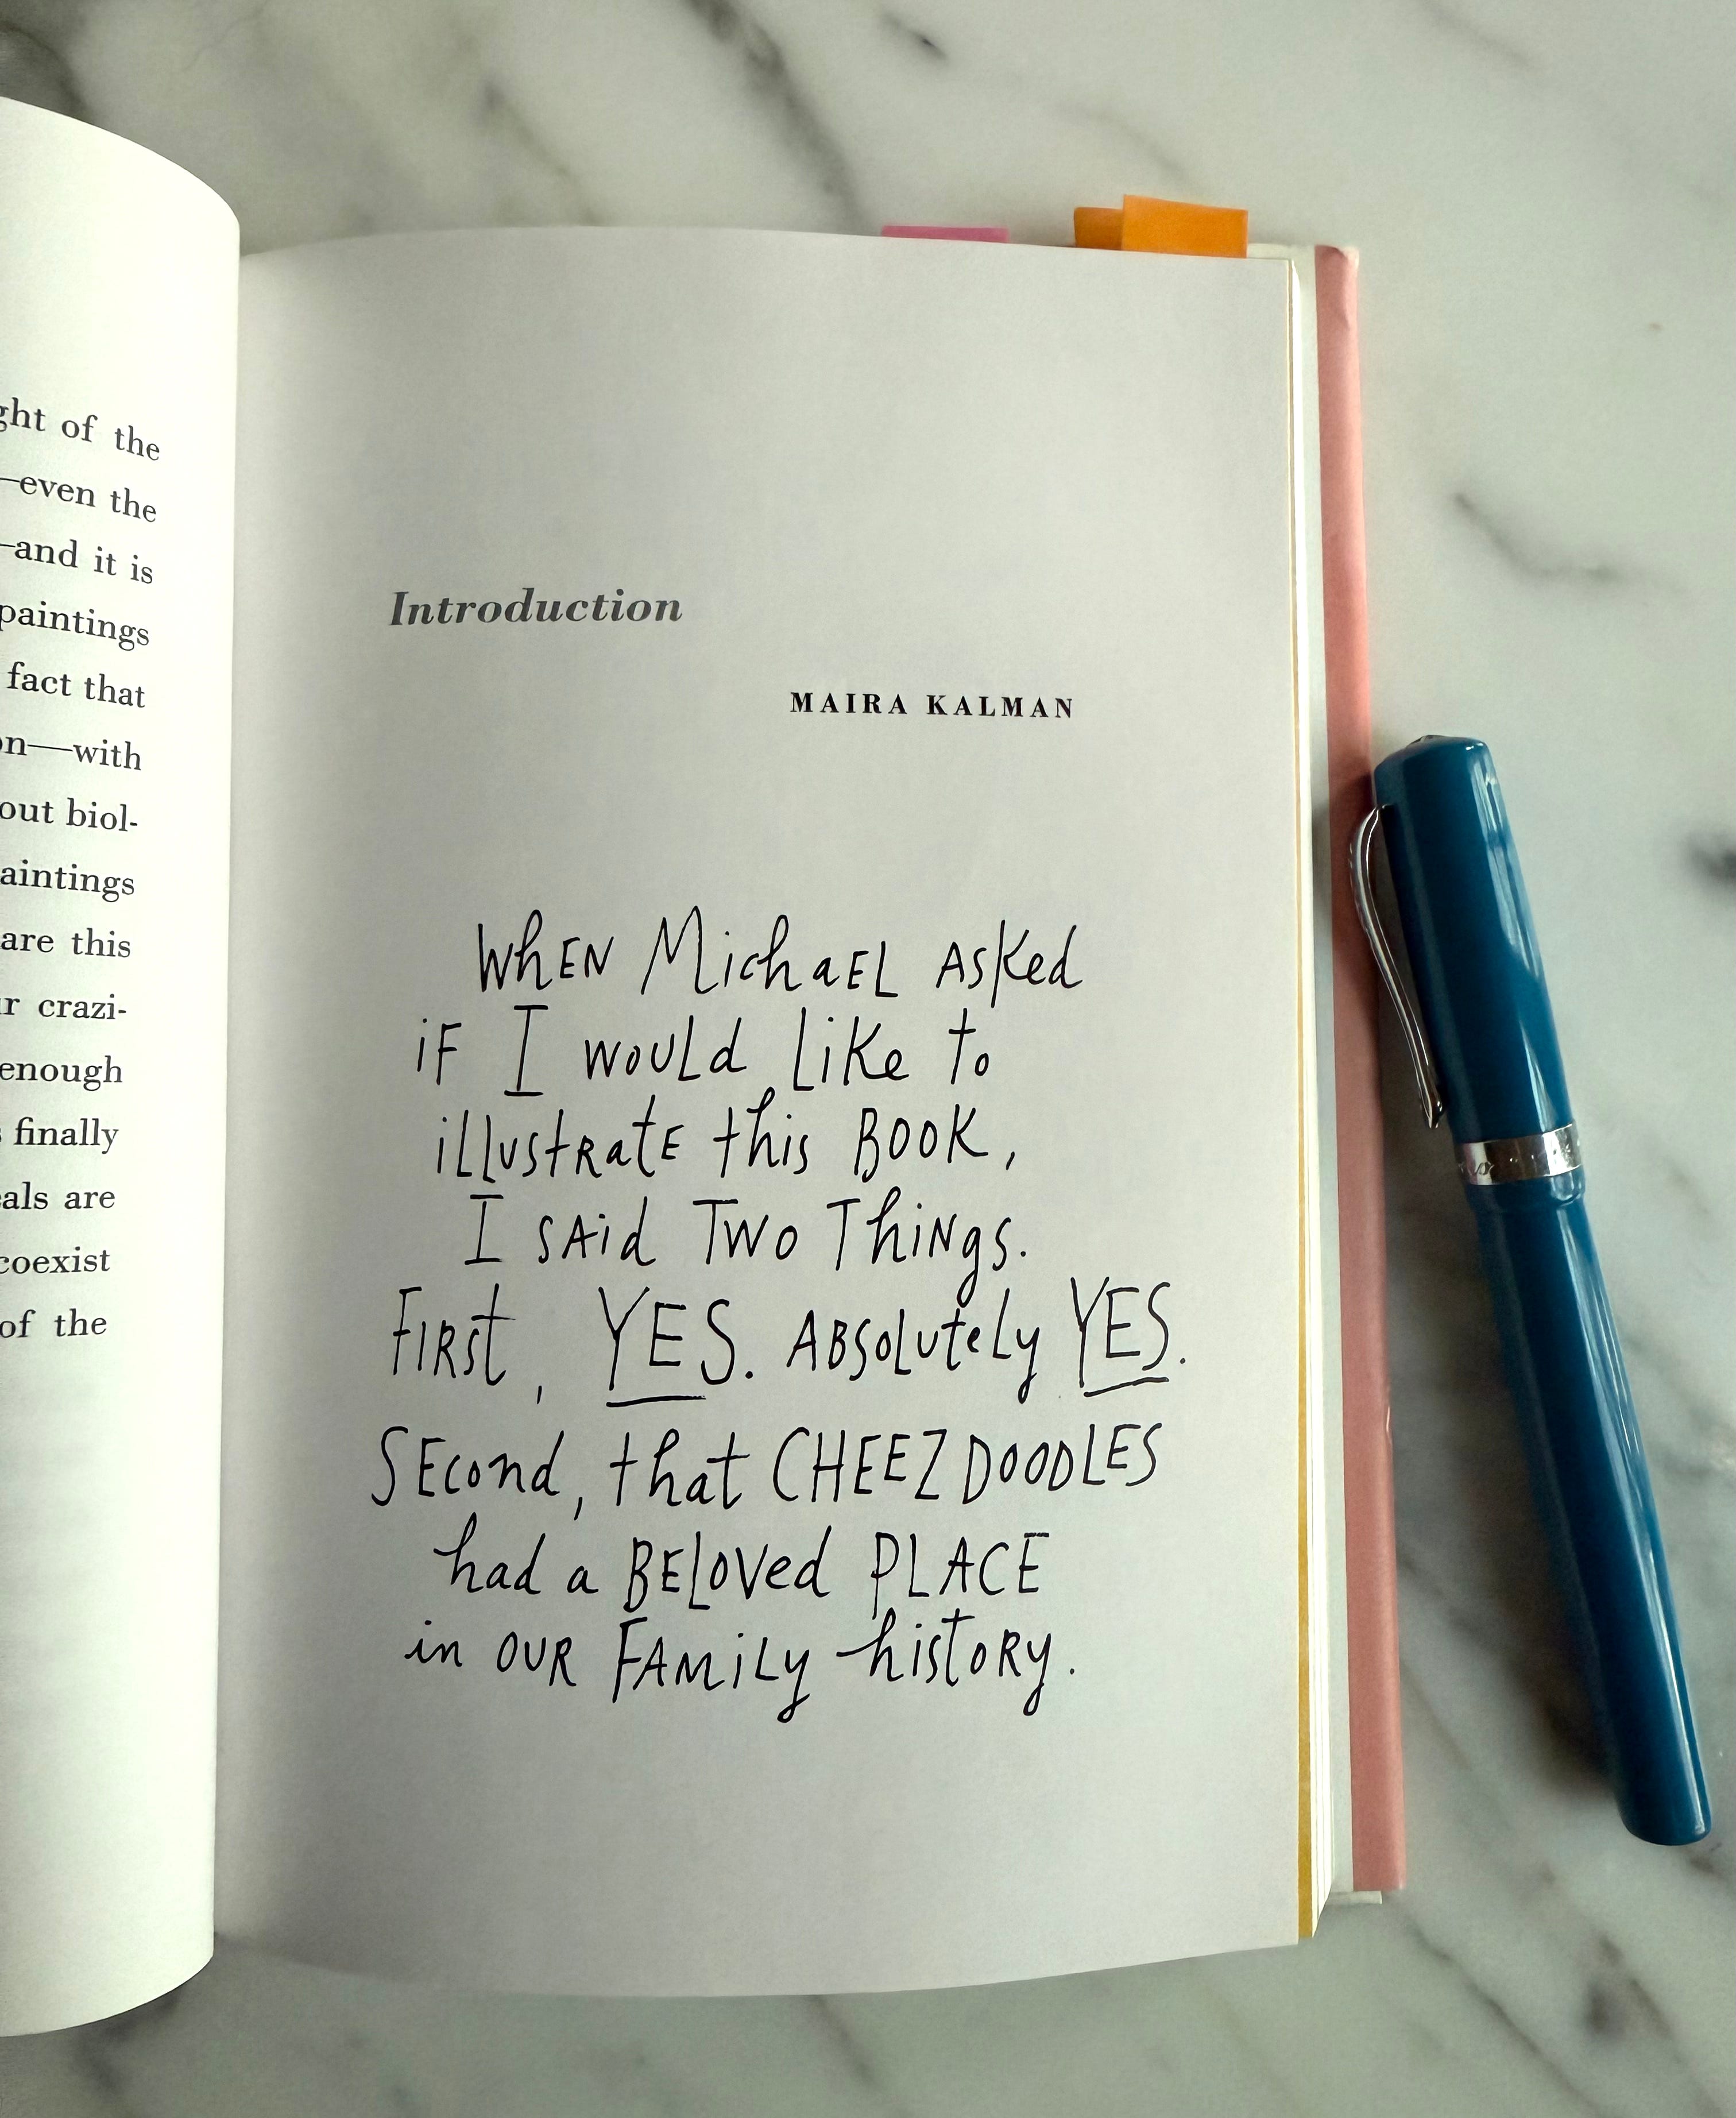 of the
—even the
—and it is
paintings
fact that
—with
out biol-
are this
crazi-
enough
finally
are
coexist
of the
Introduction
MAIRA KALMAN
WhEN MichaEL ASKed
iF I woULd Like to
iLLUStRatE this BOOK,
I SAid TWO ThiNgs.
FIRSt, YES. ABSoLuteLy YES.
SEcond, that CHEEZ DOODLES
had a BELOVed PLACE
in OUR FAMiLy histoRy.